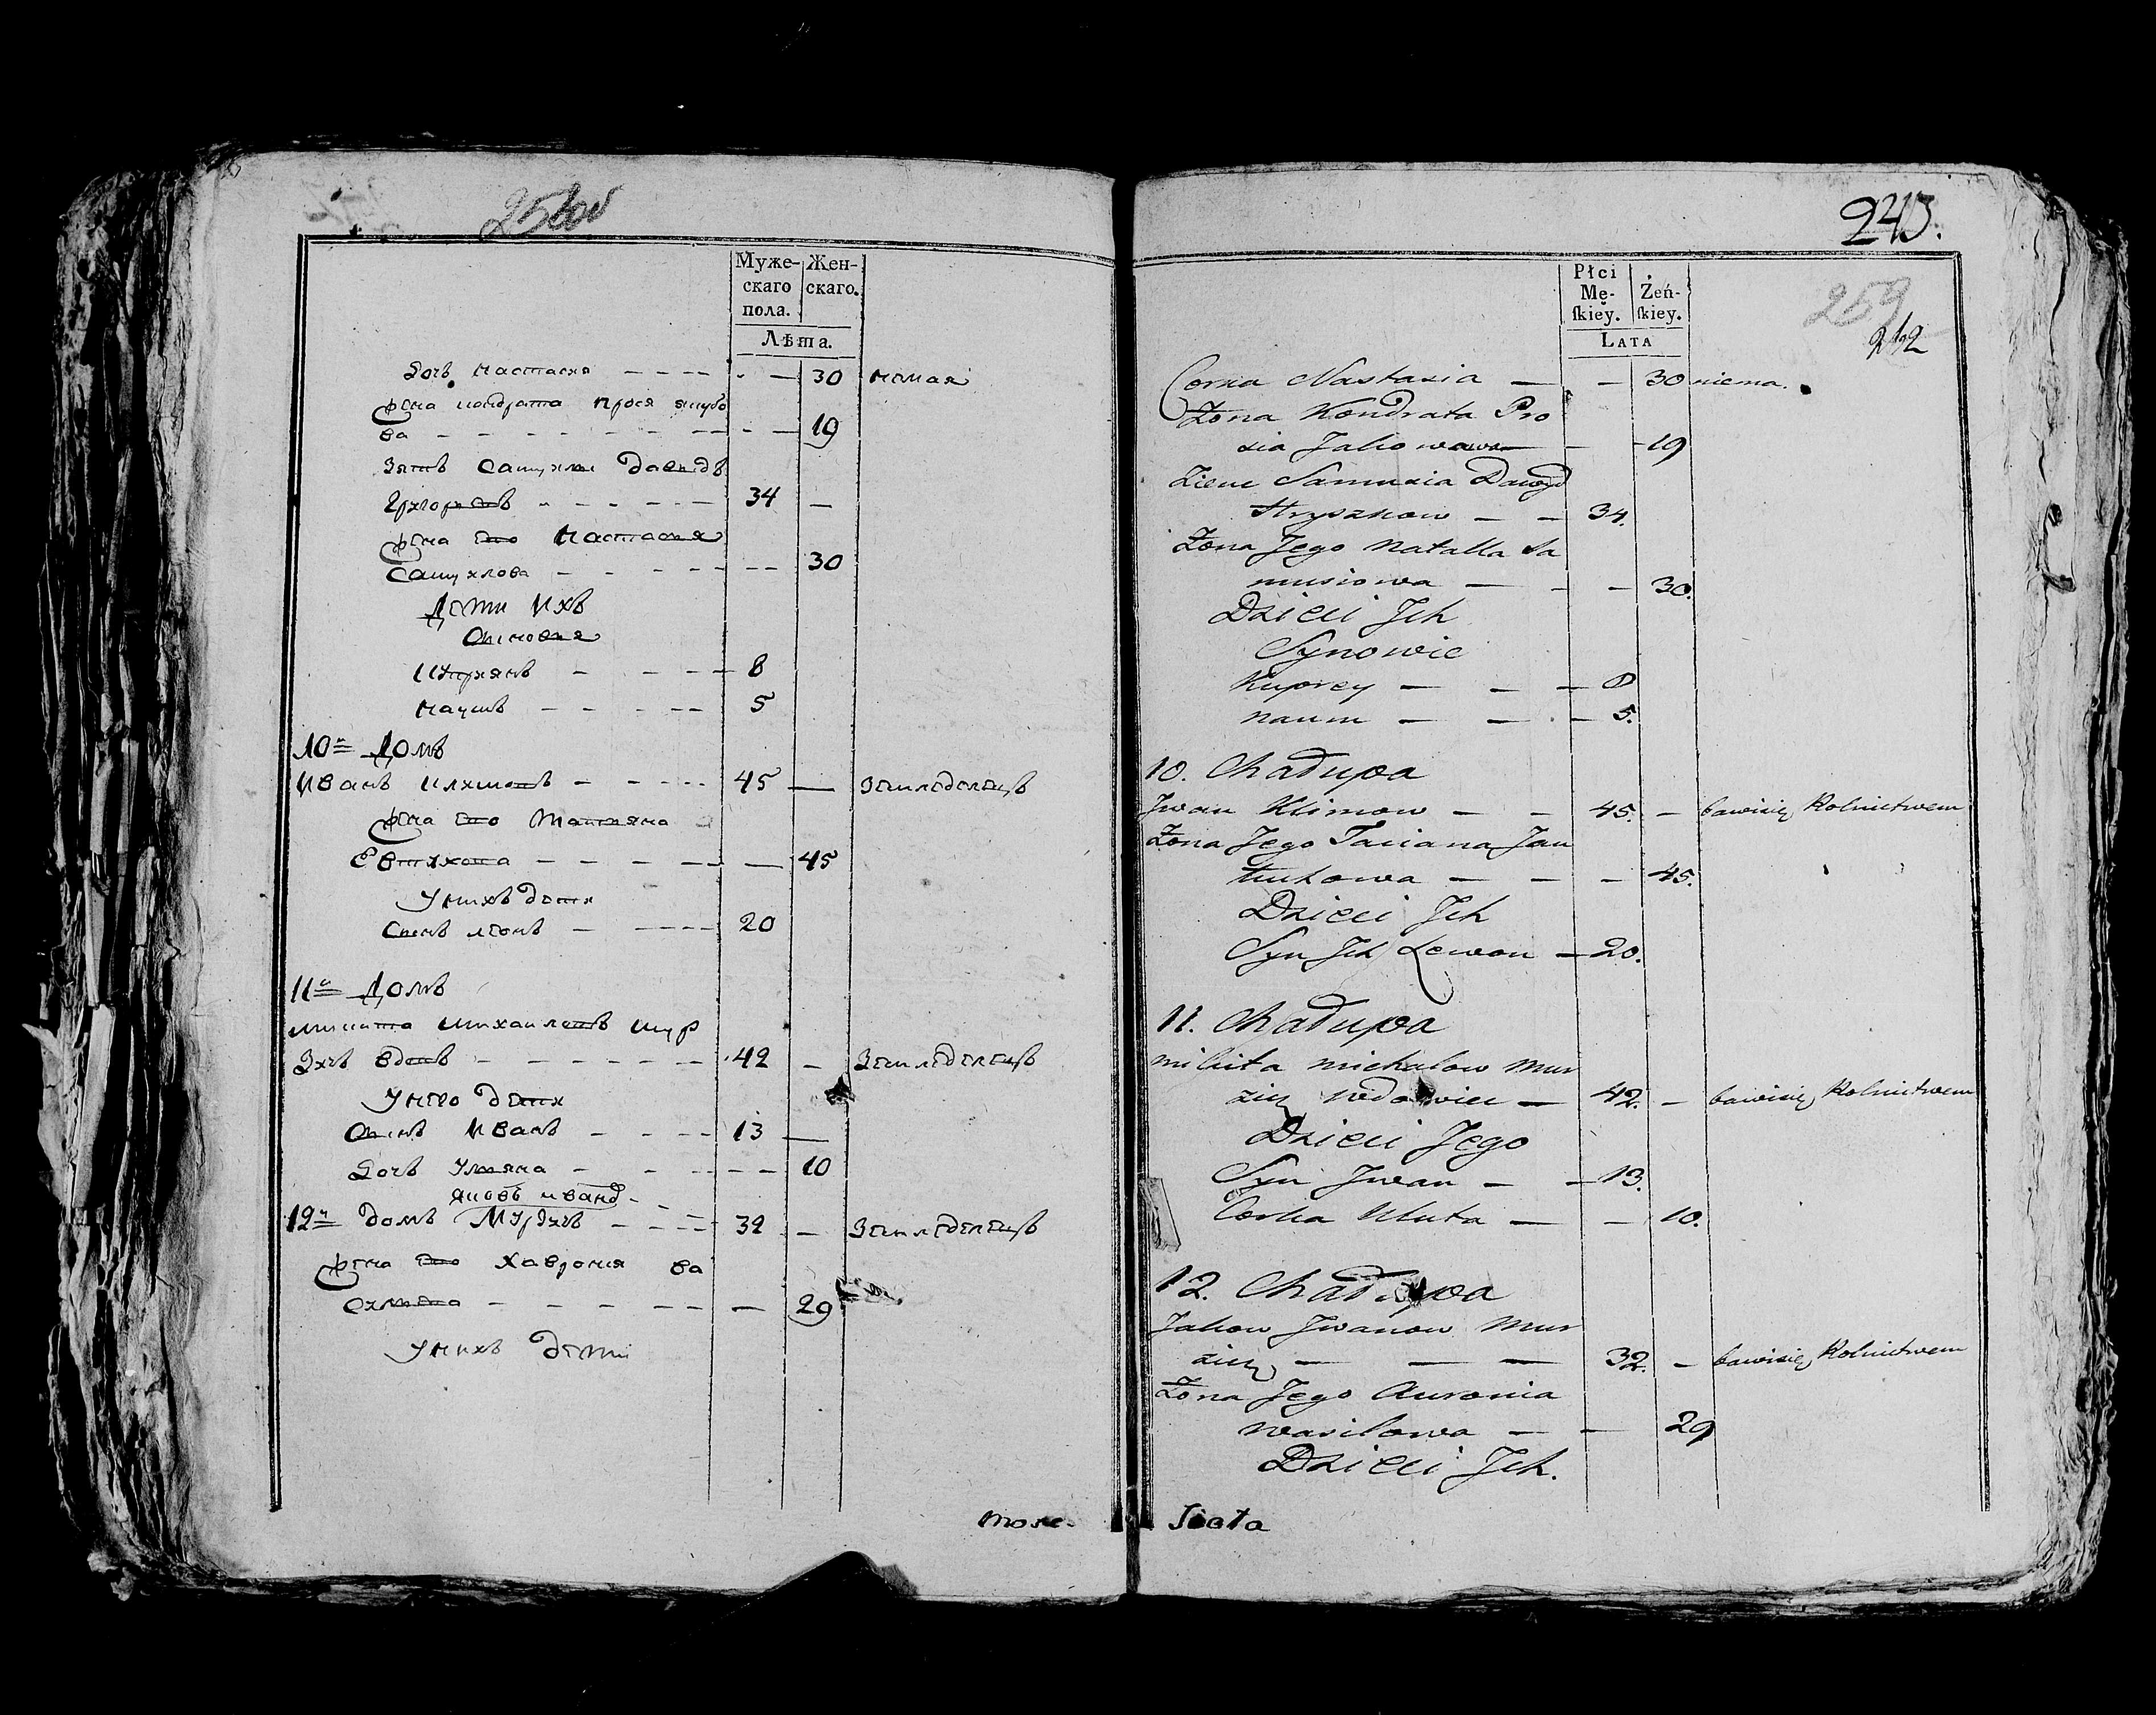 Муже-
скаго
пола.
Жен-
скаго.
Лѣта.
Дочь Настасия - - - - - — 30 немая
Жена Кондрата Прося Якубо
ва - - - - - - - - — 19
Зять Самуила Давидъ
Григорьевъ - - - - - - 34 —
Жена его Настасия
Самуилова - - - - - - - 30
Дети ихъ
Сыновья
Куприянъ - - - - - 8
Наумъ - - - - - 5
10й Домъ
Иванъ Климовъ - - - - - 45 — Земледелецъ
Жена его Татьяна
Евтихова - - - - - - — 45
У нихъ дети
Сынъ Леонъ - - - - - 20
11й Домъ
Микита Михаиловъ Мур
зичъ вдовъ - - - - - - 42 — Земледелецъ
У него дети
Сынъ Иванъ - - - - 13 —
Дочь Ульяна - - - - - - 10
Яковъ Иванов -
12й домъ Мурзичъ - - - - 32 — Земледелецъ
Жена его Хаврония Ва
сильева - - - - - - — 29
У нихъ дети
243.
242
Płci
Mę-
ſkiey.
Żeń-
ſkiey.
Lata
Corka Nastazia — — 30 niema.
Żona Kondrata Pro
sia Jakowowa — - 19
Zienc Samusia Dawyd
Hryszkow — — 34.
Żona Jego Natalla Sa
musiowa — - — 30.
Dzieci Jch
Synowie
Kuprey — - — 8
naum — — - — 5.
10. Chałupa
Jwan Klimow — — 45. — bawisię Rolnictwem
Żona Jego Taciana Jau
tuchowa — — — 45.
Dzieci Jch
Syn Jch Lewon — 20.
11. Chałupa
mikita michalow Mur
zicz wdowiec — 42. — bawisię Rolnictwem
Dzieci Jego
Syn Jwan — — 13.
Corka Uluta — — 10.
12. Chałupa
Jakow Jwanow Mur
zicz — — — 32. — bawisię Rolnictwem
Żona Jego Auronia
wasilowa — — 29
Dzieci Jch.